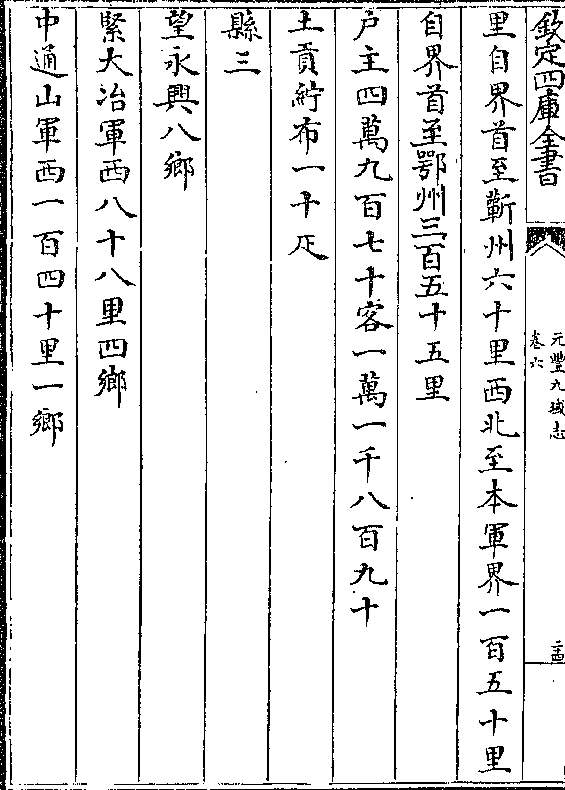 欽定四庫全書
元豐九域志
卷六
里自界首至蘄州六十里西北至本軍界一百五十里
自界首至鄂州三百五十五里
戶主四萬九百七十客一萬一千八百九十
土貢紵布一十疋
縣三
望永興八鄉
緊大冶軍西八十八里四鄉
中通山軍西一百四十里一鄉